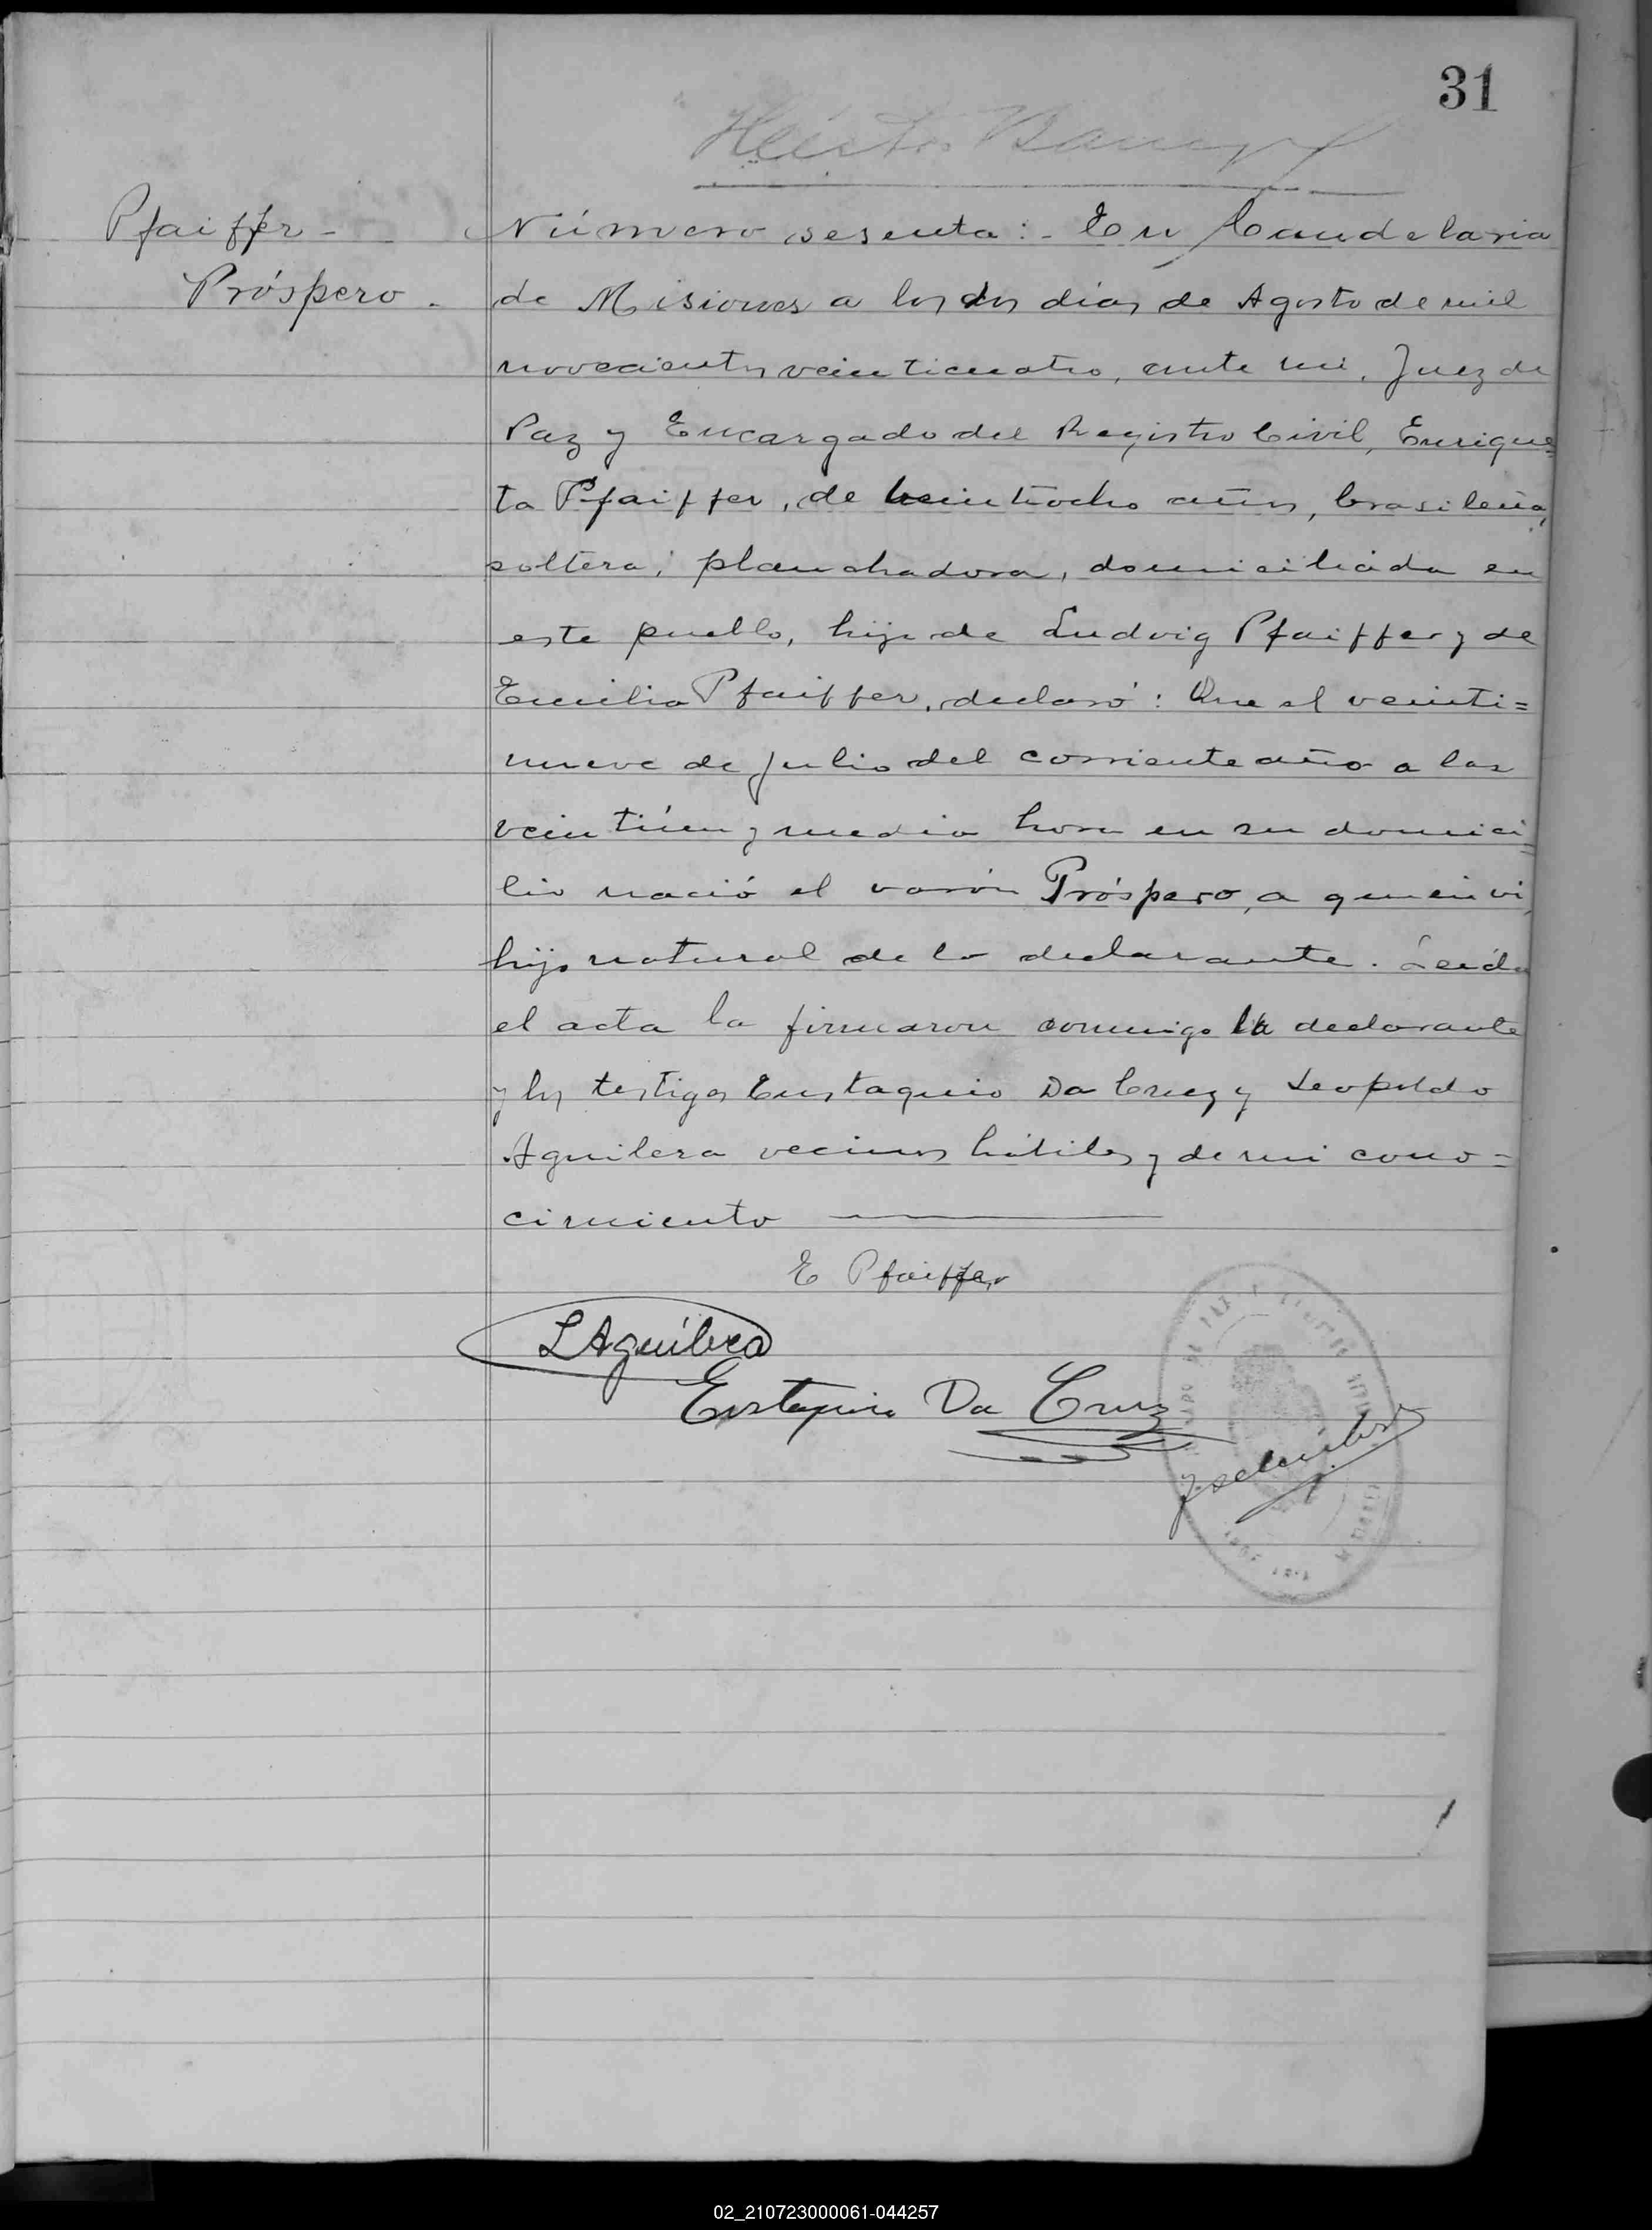 31
Héctor
Pfaiffer -
Próspero -
Número sesenta: - En Candelaria
de Misiones a los dos días de Agosto de mil
novecientos veinticuatro, ante mi, Juez de
Paz y Encargado del Registro Civil, Enrique=
ta Pfaiffer, de veintiocho años, brasileña,
soltera, planchadora, domiciliada en
este pueblo, hija de Ludvig Pfaiffer y de
Emilia Pfaiffer, declaró: Que el veinti=
nueve de Julio del corriente año a las
veintiún y media hora en su domici=
lio nació el varón Próspero, a quien vi,
hijo natural de la declarante. Leída
el acta la firmaron conmigo la declarante
y los testigos Eustaquio Da Cruz y Leopoldo
Aguilera vecinos hábiles y de mi cono=
cimiento
E Pfaiffer
L Aguilera
Eustaquio Da Cruz
02_210723000061-044257